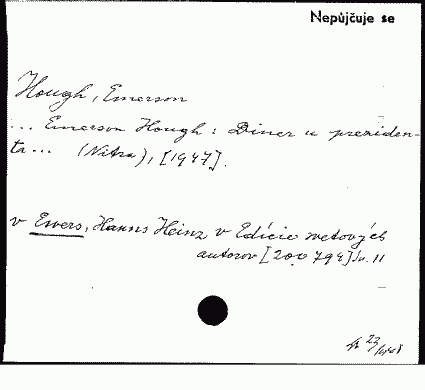 Nepůjčuje se
Hough, Emerson
... Emerson Hough: Diner u preziden-
ta... (Nitra), [1947].
v Ewers, Hanns Heinz v Edície svetových
autorov [200794] Sv. 11